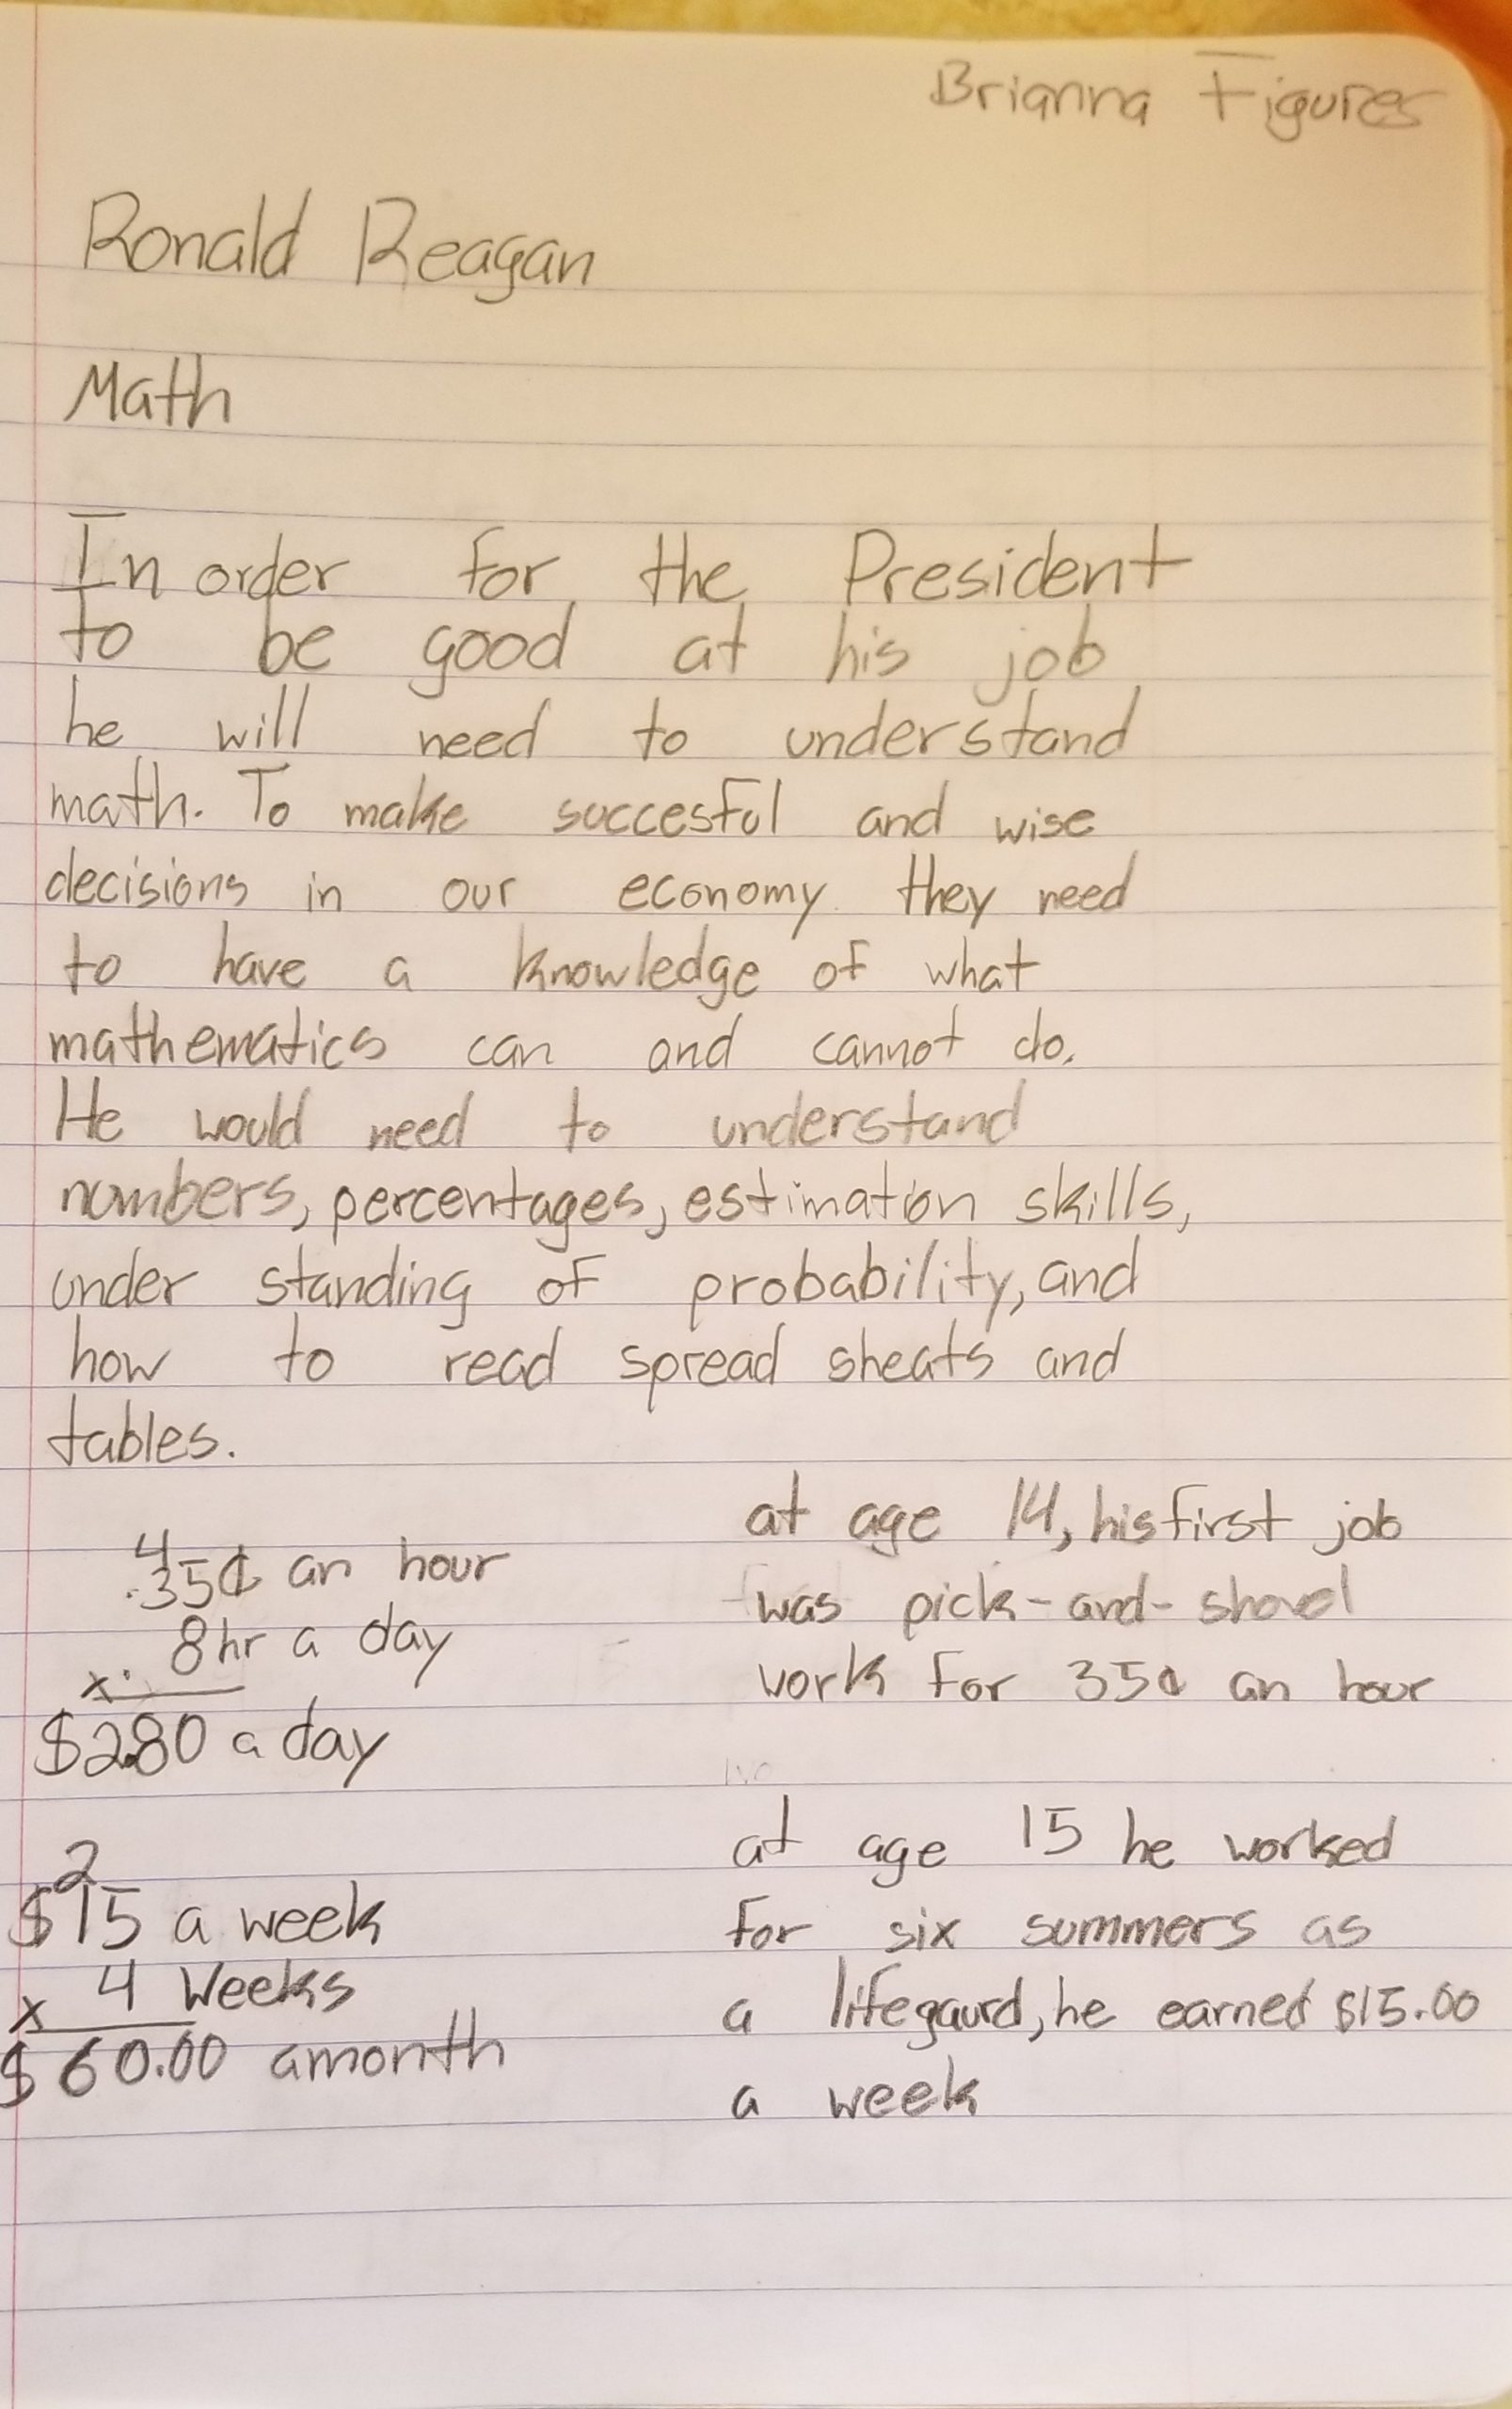 Brianna Figures
Ronald Reagan
Math
In order for the President
to be good at his job
he will need to understand
math. To make succesful and wise
decisions in our economy they need
to have a knowledge of what
mathematics can and cannot do.
He would need to understand
numbers, percentages, estimation skills,
under standing of probability, and
how to read spread sheats and
tables.
4
.35¢ an hour
8hr a day
x.
$2.80 a day
at age 14, his first job
was pick-and-shovel
work for 35¢ an hour
2
$15 a week
x 4 Weeks
$60.00 amonth
at age 15 he worked
for six summers as
a lifegaurd, he earned $15.00
a week